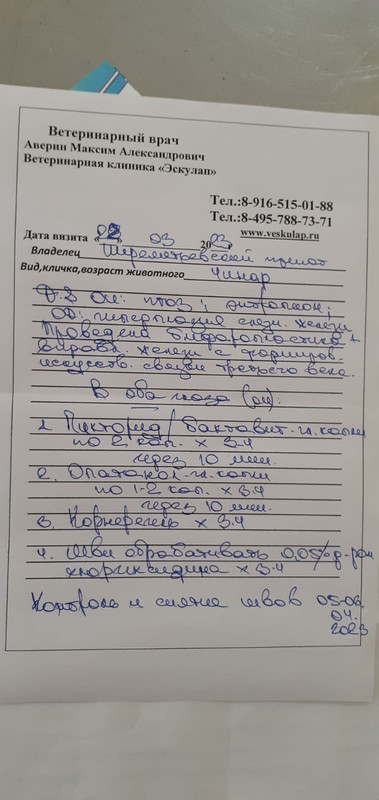 Ветеринарный врач
Аверин Максим Александрович
Ветеринарная клиника «Эскулап»
Тел.:8-916-515-01-88
Тел.:8-495-788-73-71
www.veskulap.ru
Дата визита « » 03 2023
Владелец Шереметьевский приют
Вид,кличка,возраст животного Чинар
D.S OU: птоз, энтропион;
OD: слезн. железы
Проведена блефаропластика +
вправл. железы с формиров.
искусств. связки третьего века.
В оба глаза (OU):
1. / бактавит-гл. капли
по 2 кап. х 3.4
через 10 мин.
2. -гл. капли
по 1-2 кап. х 3.4
через 10 мин.
3. Корнерегель х 3.4
4. Швы обрабатывать 0,05% р-ром
хлоргексидина х 3.4
Контроль и снятие швов 05-06.
04.
2023